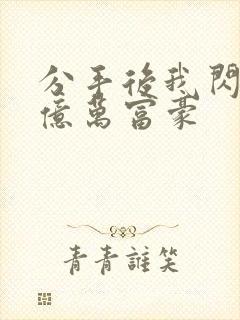 分手後我閃
億萬富豪
青青誰笑